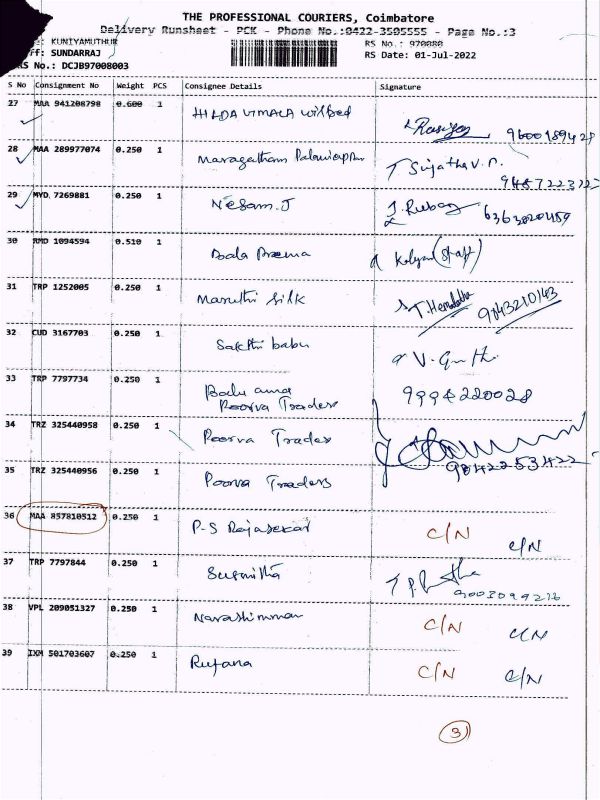 THE PROFESSIONAL COURIERS, Coimbatore
Delivery Runsheet - PCK - Phone No.:0422-3505555 - Page No.:3
KUNIYAMUTHUR
ff: SUNDARRAJ
RS No.: DCJB97008003
RS No.: 970080
RS Date: 01-Jul-2022
S No Consignment No Weight PCS Consignee Details Signature
27 MAA 941208798 0.600 1 HILDA VIMALA Wilfred 9600989428
28 MAA 289977074 0.250 1 Maragatham Palaniappan T Sujatha V.
29 MYD 7269881 0.250 1 Nesam.J
30 RMD 1094594 0.510 1 Bala Prema Kalyan (Staff)
31 TRP 1252005 0.250 1 Maruthi Silk T. 9843210143
32 CUD 3167703 0.250 1 Sakthi babu V.
33 TRP 7797734 0.250 1 Balu
Poorva Traders 9994220028
34 TRZ 325440958 0.250 1 Poorva Trades
9842253422
35 TRZ 325440956 0.250 1 Poorva Traders
36 MAA 857810512 0.250 1 P-S Rajasekar C/N C/N
37 TRP 7797844 0.250 1 Susmitha
9003099216
38 VPL 209051327 0.250 1 Narashimman C/N C/N
39 IXM 501703607 0.250 1 Rufana C/N C/N
3